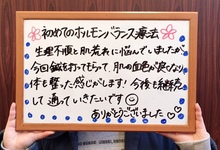 初めてのホルモンバランス療法
生理不順と肌荒れに悩んでいましたが
今回鍼を打ってもらって、肌の血色が良くなり
体も整った感じがします!今後も継続
して通っていきたいです
ありがとうございました